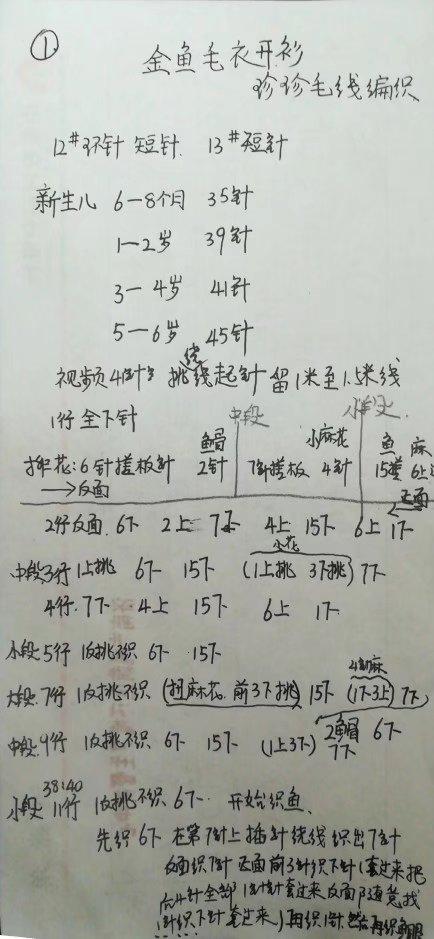 ①
金鱼毛衣开衫
珍珍毛线编织
12#环针 短针. 13#短针
新生儿 6—8个月 35针
1—2岁 39针
3—4岁 41针
5—6岁 45针
视频41针 挑绕线起针 留1米至1.5米线
1行 全下针 中段 小段
鱼帽 小麻花 鱼 麻
排花:6针搓板针 2针 7针搓板 4针 15搓 6上
→反面 正面 ←
2行反面. 6下 2上 7下 4上 15下 6上 1下
小花
中段3行 1上挑 6下 15下 (1上挑 3下挑) 7下
4行. 7下 4上 15下 6上 1下
小段5行 1次挑不织 6下 15下
大段.7行 1次挑不织 (扭麻花.前3下挑) 15下 (1下3上) 7下
中段.9行 1次挑不织 6下 15下 (1上3下) 2鱼帽 6下
7下
38:40
小段 11行 1次挑不织 6下. 开始织鱼.
先织6下 在第7针上插针绕线织出7针
反面织7针 正面前3针织下针(套过来把
后4针全部 套过来 反面
1针织下针 套过来) 再织1针 然后再织